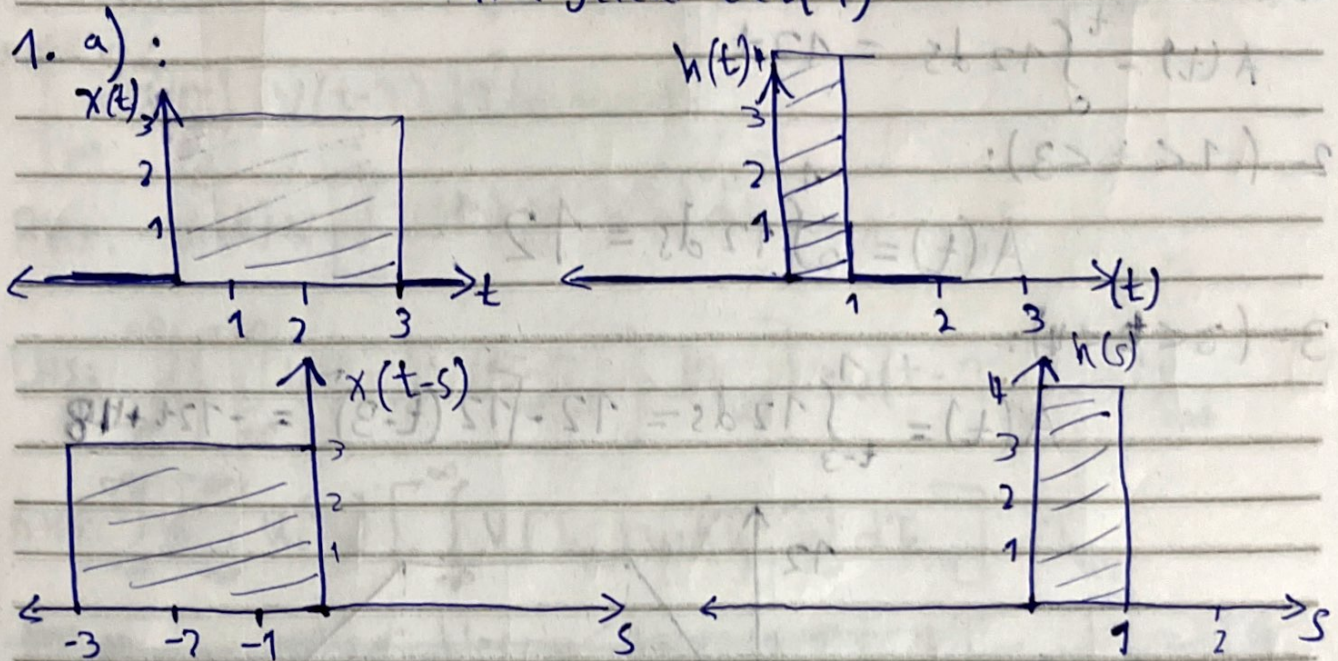 1. a) :
x(t) 3 2 1 1 2 3 t
h(t) 4 3 2 1 1 2 3 (t)
x(t-s) 3 2 1 -3 -2 -1 s
h(s) 4 3 2 1 1 2 s